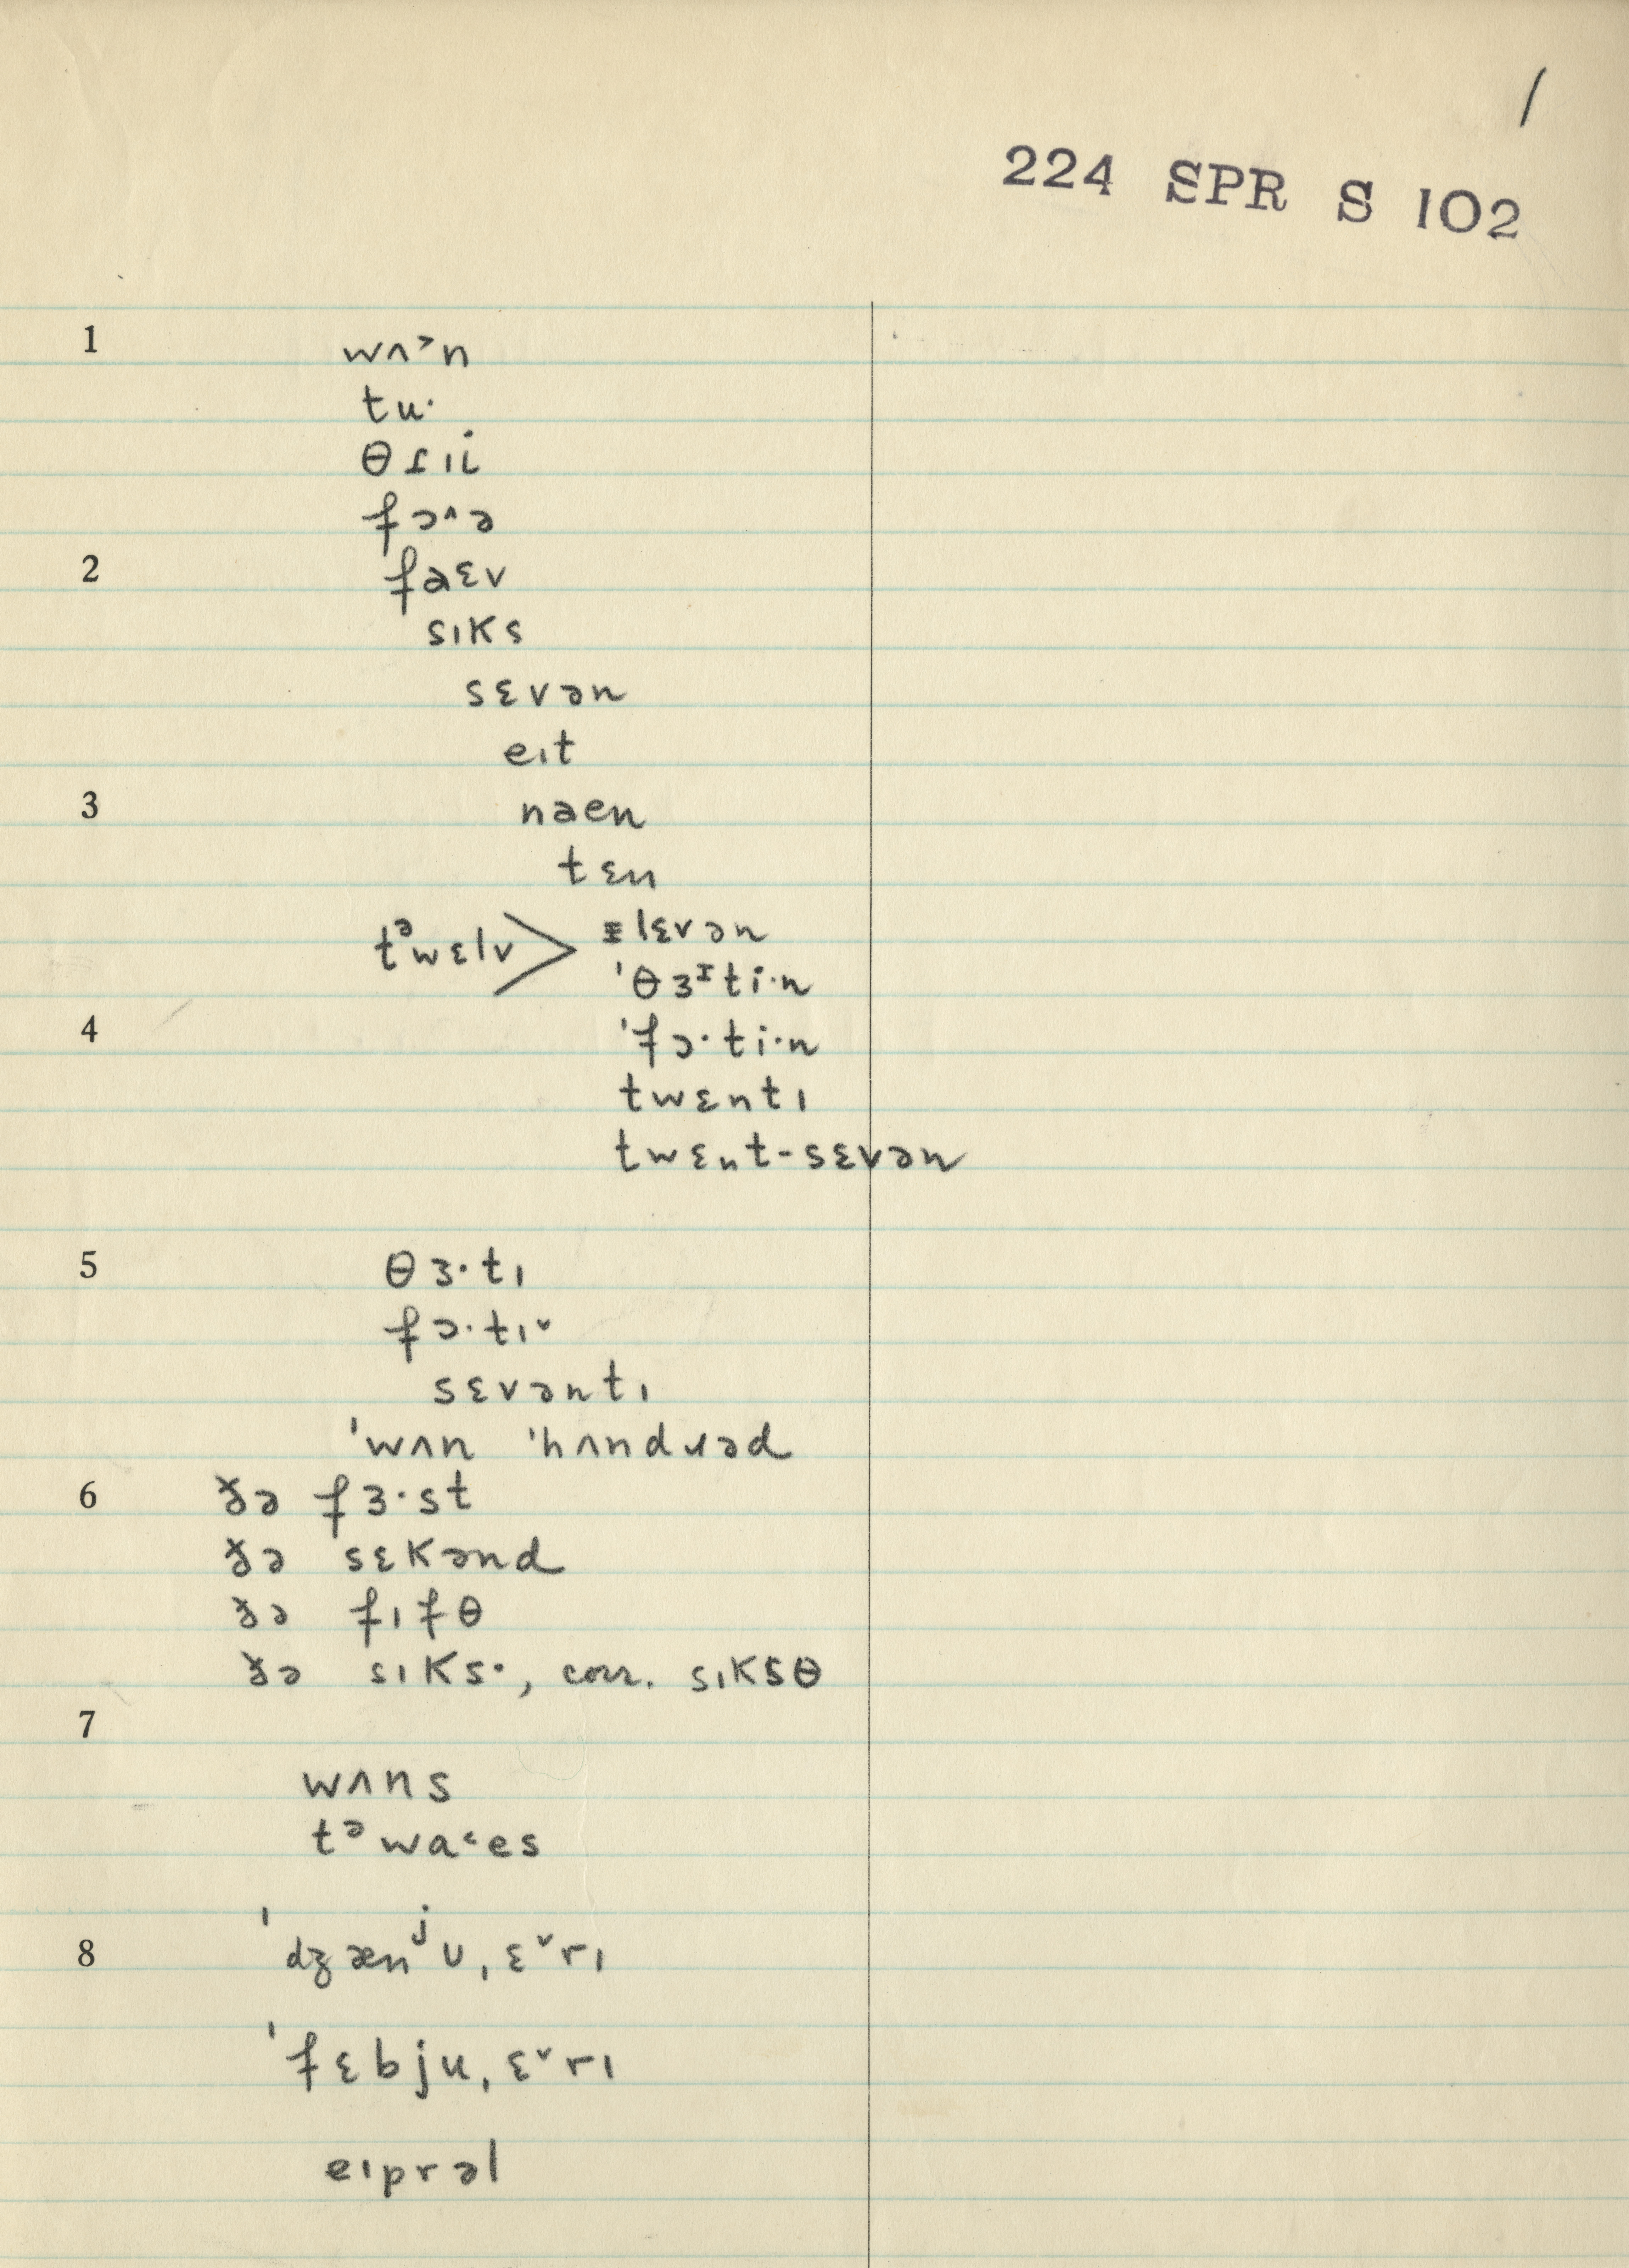 /
224 SPR S 102
1 wʌ˃n
tu·
θɾɪi
fɔ˄ə
2 faɛv
sɪks
sɛvən
eɪt
3 naen
tɛn
tᵊwɛlv > ɪlɛvən
'θɜᶦti·n
4 'fɔ·ti·n
twɛntɪ
twɛnt-sɛvən
5 θɜ·tɪ
fɔ·tɪ˅
sɛvəntɪ
'wʌn 'hʌndɹəd
6 ðə fɜ·st
ðə sɛkənd
ðə fɪfθ
ðə sɪks·, corr. sɪksθ
7
wʌns
tᵊwa˂es
8 'dʒænʲʊˌɛ˅rɪ
'fɛbjuˌɛ˅rɪ
eɪprəl